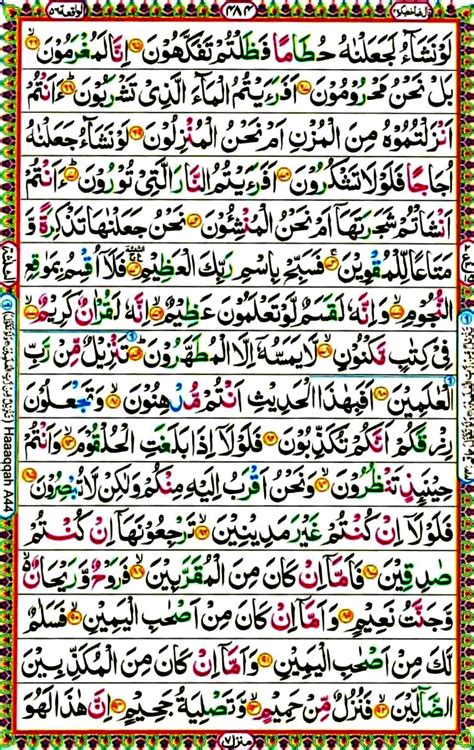 الواقعة ٥٦
٤٨٤
قال فما خطبكم ٢٧
لَوْ نَشَآءُ لَجَعَلْنٰهُ حُطَامًا فَظَلْتُمْ تَفَكَّهُوْنَ ﴿٦٥﴾ اِنَّا لَمُغْرَمُوْنَ ﴿٦٦﴾
بَلْ نَحْنُ مَحْرُوْمُوْنَ ﴿٦٧﴾ اَفَرَءَيْتُمُ الْمَآءَ الَّذِىْ تَشْرَبُوْنَ ﴿٦٨﴾ ءَاَنْتُمْ
اَنْزَلْتُمُوْهُ مِنَ الْمُزْنِ اَمْ نَحْنُ الْمُنْزِلُوْنَ ﴿٦٩﴾ لَوْ نَشَآءُ جَعَلْنٰهُ
اُجَاجًا فَلَوْلَا تَشْكُرُوْنَ ﴿٧٠﴾ اَفَرَءَيْتُمُ النَّارَ الَّتِىْ تُوْرُوْنَ ﴿٧١﴾ ءَاَنْتُمْ
اَنْشَاْتُمْ شَجَرَتَهَآ اَمْ نَحْنُ الْمُنْشِـُٔوْنَ ﴿٧٢﴾ نَحْنُ جَعَلْنٰهَا تَذْكِرَةً وَّ
مَتَاعًا لِّلْمُقْوِيْنَ ﴿٧٣﴾ فَسَبِّحْ بِاسْمِ رَبِّكَ الْعَظِيْمِ ﴿٧٤﴾ فَلَآ اُقْسِمُ بِمَوٰقِعِ
النُّجُوْمِ ﴿٧٥﴾ وَاِنَّهٗ لَقَسَمٌ لَّوْ تَعْلَمُوْنَ عَظِيْمٌ ﴿٧٦﴾ اِنَّهٗ لَقُرْاٰنٌ كَرِيْمٌ ﴿٧٧﴾
فِىْ كِتٰبٍ مَّكْنُوْنٍ ﴿٧٨﴾ لَّا يَمَسُّهٗٓ اِلَّا الْمُطَهَّرُوْنَ ﴿٧٩﴾ تَنْزِيْلٌ مِّنْ رَّبِّ
الْعٰلَمِيْنَ ﴿٨٠﴾ اَفَبِهٰذَا الْحَدِيْثِ اَنْتُمْ مُّدْهِنُوْنَ ﴿٨١﴾ وَتَجْعَلُوْنَ
رِزْقَكُمْ اَنَّكُمْ تُكَذِّبُوْنَ ﴿٨٢﴾ فَلَوْلَآ اِذَا بَلَغَتِ الْحُلْقُوْمَ ﴿٨٣﴾ وَاَنْتُمْ
حِيْنَئِذٍ تَنْظُرُوْنَ ﴿٨٤﴾ وَنَحْنُ اَقْرَبُ اِلَيْهِ مِنْكُمْ وَلٰكِنْ لَّا تُبْصِرُوْنَ ﴿٨٥﴾
فَلَوْلَآ اِنْ كُنْتُمْ غَيْرَ مَدِيْنِيْنَ ﴿٨٦﴾ تَرْجِعُوْنَهَآ اِنْ كُنْتُمْ
صٰدِقِيْنَ ﴿٨٧﴾ فَاَمَّآ اِنْ كَانَ مِنَ الْمُقَرَّبِيْنَ ﴿٨٨﴾ فَرَوْحٌ وَّرَيْحَانٌ ۙ
وَّجَنَّتُ نَعِيْمٍ ﴿٨٩﴾ وَاَمَّآ اِنْ كَانَ مِنْ اَصْحٰبِ الْيَمِيْنِ ﴿٩٠﴾ فَسَلٰمٌ
لَّكَ مِنْ اَصْحٰبِ الْيَمِيْنِ ﴿٩١﴾ وَاَمَّآ اِنْ كَانَ مِنَ الْمُكَذِّبِيْنَ
الضَّآلِّيْنَ ﴿٩٢﴾ فَنُزُلٌ مِّنْ حَمِيْمٍ ﴿٩٣﴾ وَّتَصْلِيَةُ جَحِيْمٍ ﴿٩٤﴾ اِنَّ هٰذَا لَهُوَ
منزل ٧
Haaaqqah A44